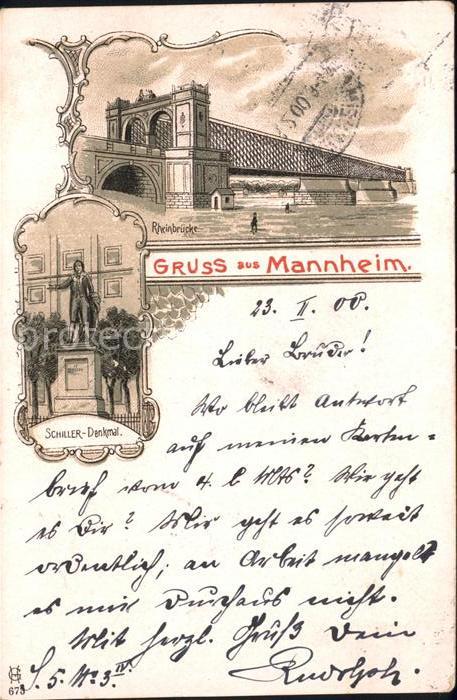 Rheinbrücke
GRUSS aus Mannheim.
SCHILLER-Denkmal.
23. II. 00.
Lieber Bruder!
Wo bleibt Antwort
auf meinen Karten-
brief vom 4. l. Mts? Wie geht
es Dir? Mir geht es soweit
ordentlich; an Arbeit mangelt
es mir durchaus nicht.
Mit herzl. Gruß Dein
S. 5. No 3. IV Rudolph.
673